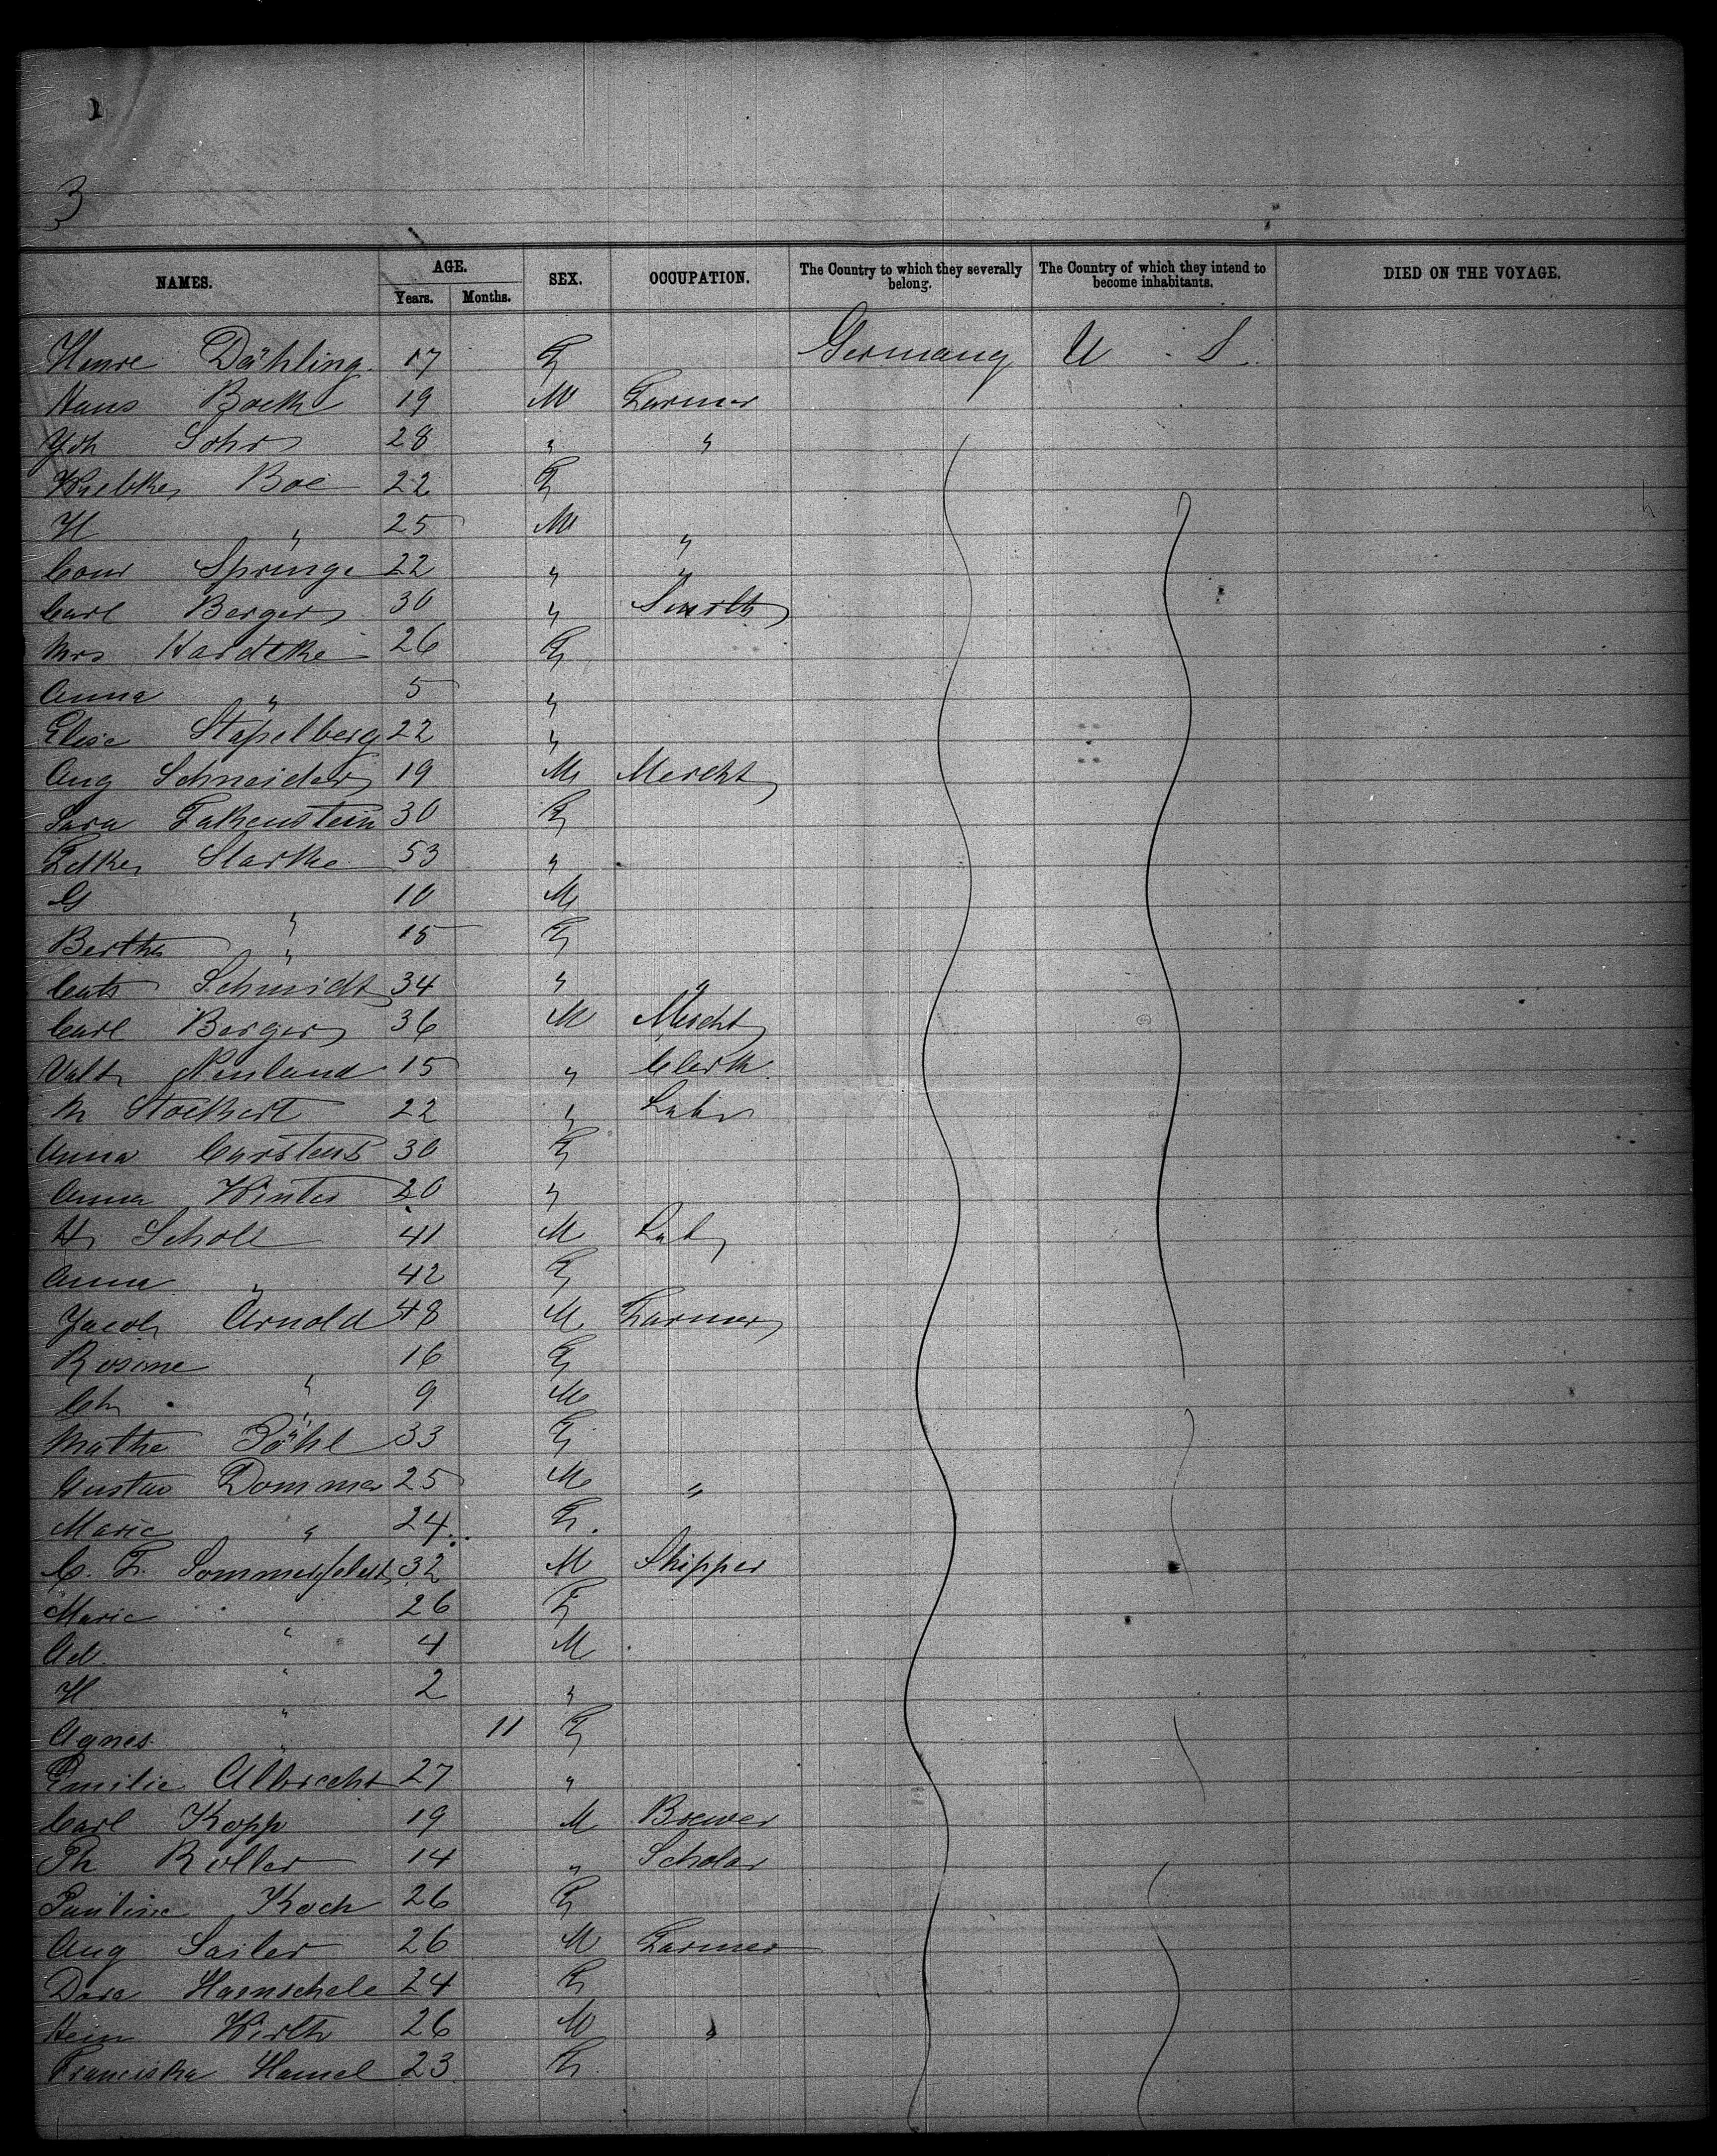 1
3
NAMES. AGE. SEX. OCCUPATION. The Country to which they severally belong. The Country of which they intend to become inhabitants. DIED ON THE VOYAGE.
Years. Months.
Dähling 17 F Germany U S
Hans Boeck 19 M Farmer
Joh 28 " "
Wiebke Boe 22 F
H " 25 M "
Springe 22 " "
Carl Berger 30 " Smith
Mrs Hardtke 26 F
Anna " 5 "
Elise Stapelberg 22 "
Aug Schneider 19 M Mercht
Sara Falkenstein 30 F
Starke 53 "
G " 10 M
Bertha " 15 F
Cath Schmidt 34 " "
Carl Berger 36 M Mercht
Neuland 15 " Clerk
M Stockert 22 " Labr
Anna Carstens 30 F
Anna Winter 20 "
H Scholl 41 M Lab
Anna " 42 F
Jacob Arnold 48 M Farmer
Rosine " 16 F
Ch " 9 M
Mathe Pöhl 33 F
Gustav Dommer 25 M "
Marie " 24 F
C. F. Sommerfeldt 32 M Skipper
Marie " 26 F
Ad " 4 M
H " 2 "
Agnes " 11 F
Emilie Albrecht 27 "
Carl Kopp 19 M Brewer
Ph Roller 14 " Scholar
Pauline Koch 26 F
Aug Sailer 26 M Farmer
Dora 24 F
Hein Wirth 26 M "
Franciska Hamel 23 F